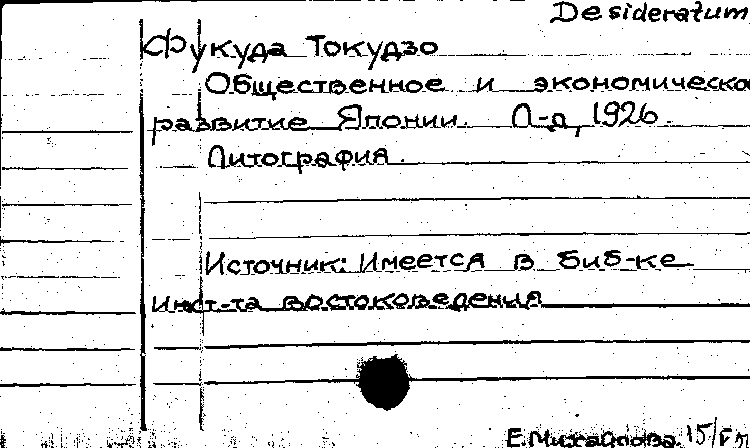 Desideratum
Фукуда Токудзо
Общественное и экономическо
развитие Японии. Л-д, 1926.
Литография.
Источник: Имеется в биб-ке
Инст-та востоковедения
Е. Михайлова 15/